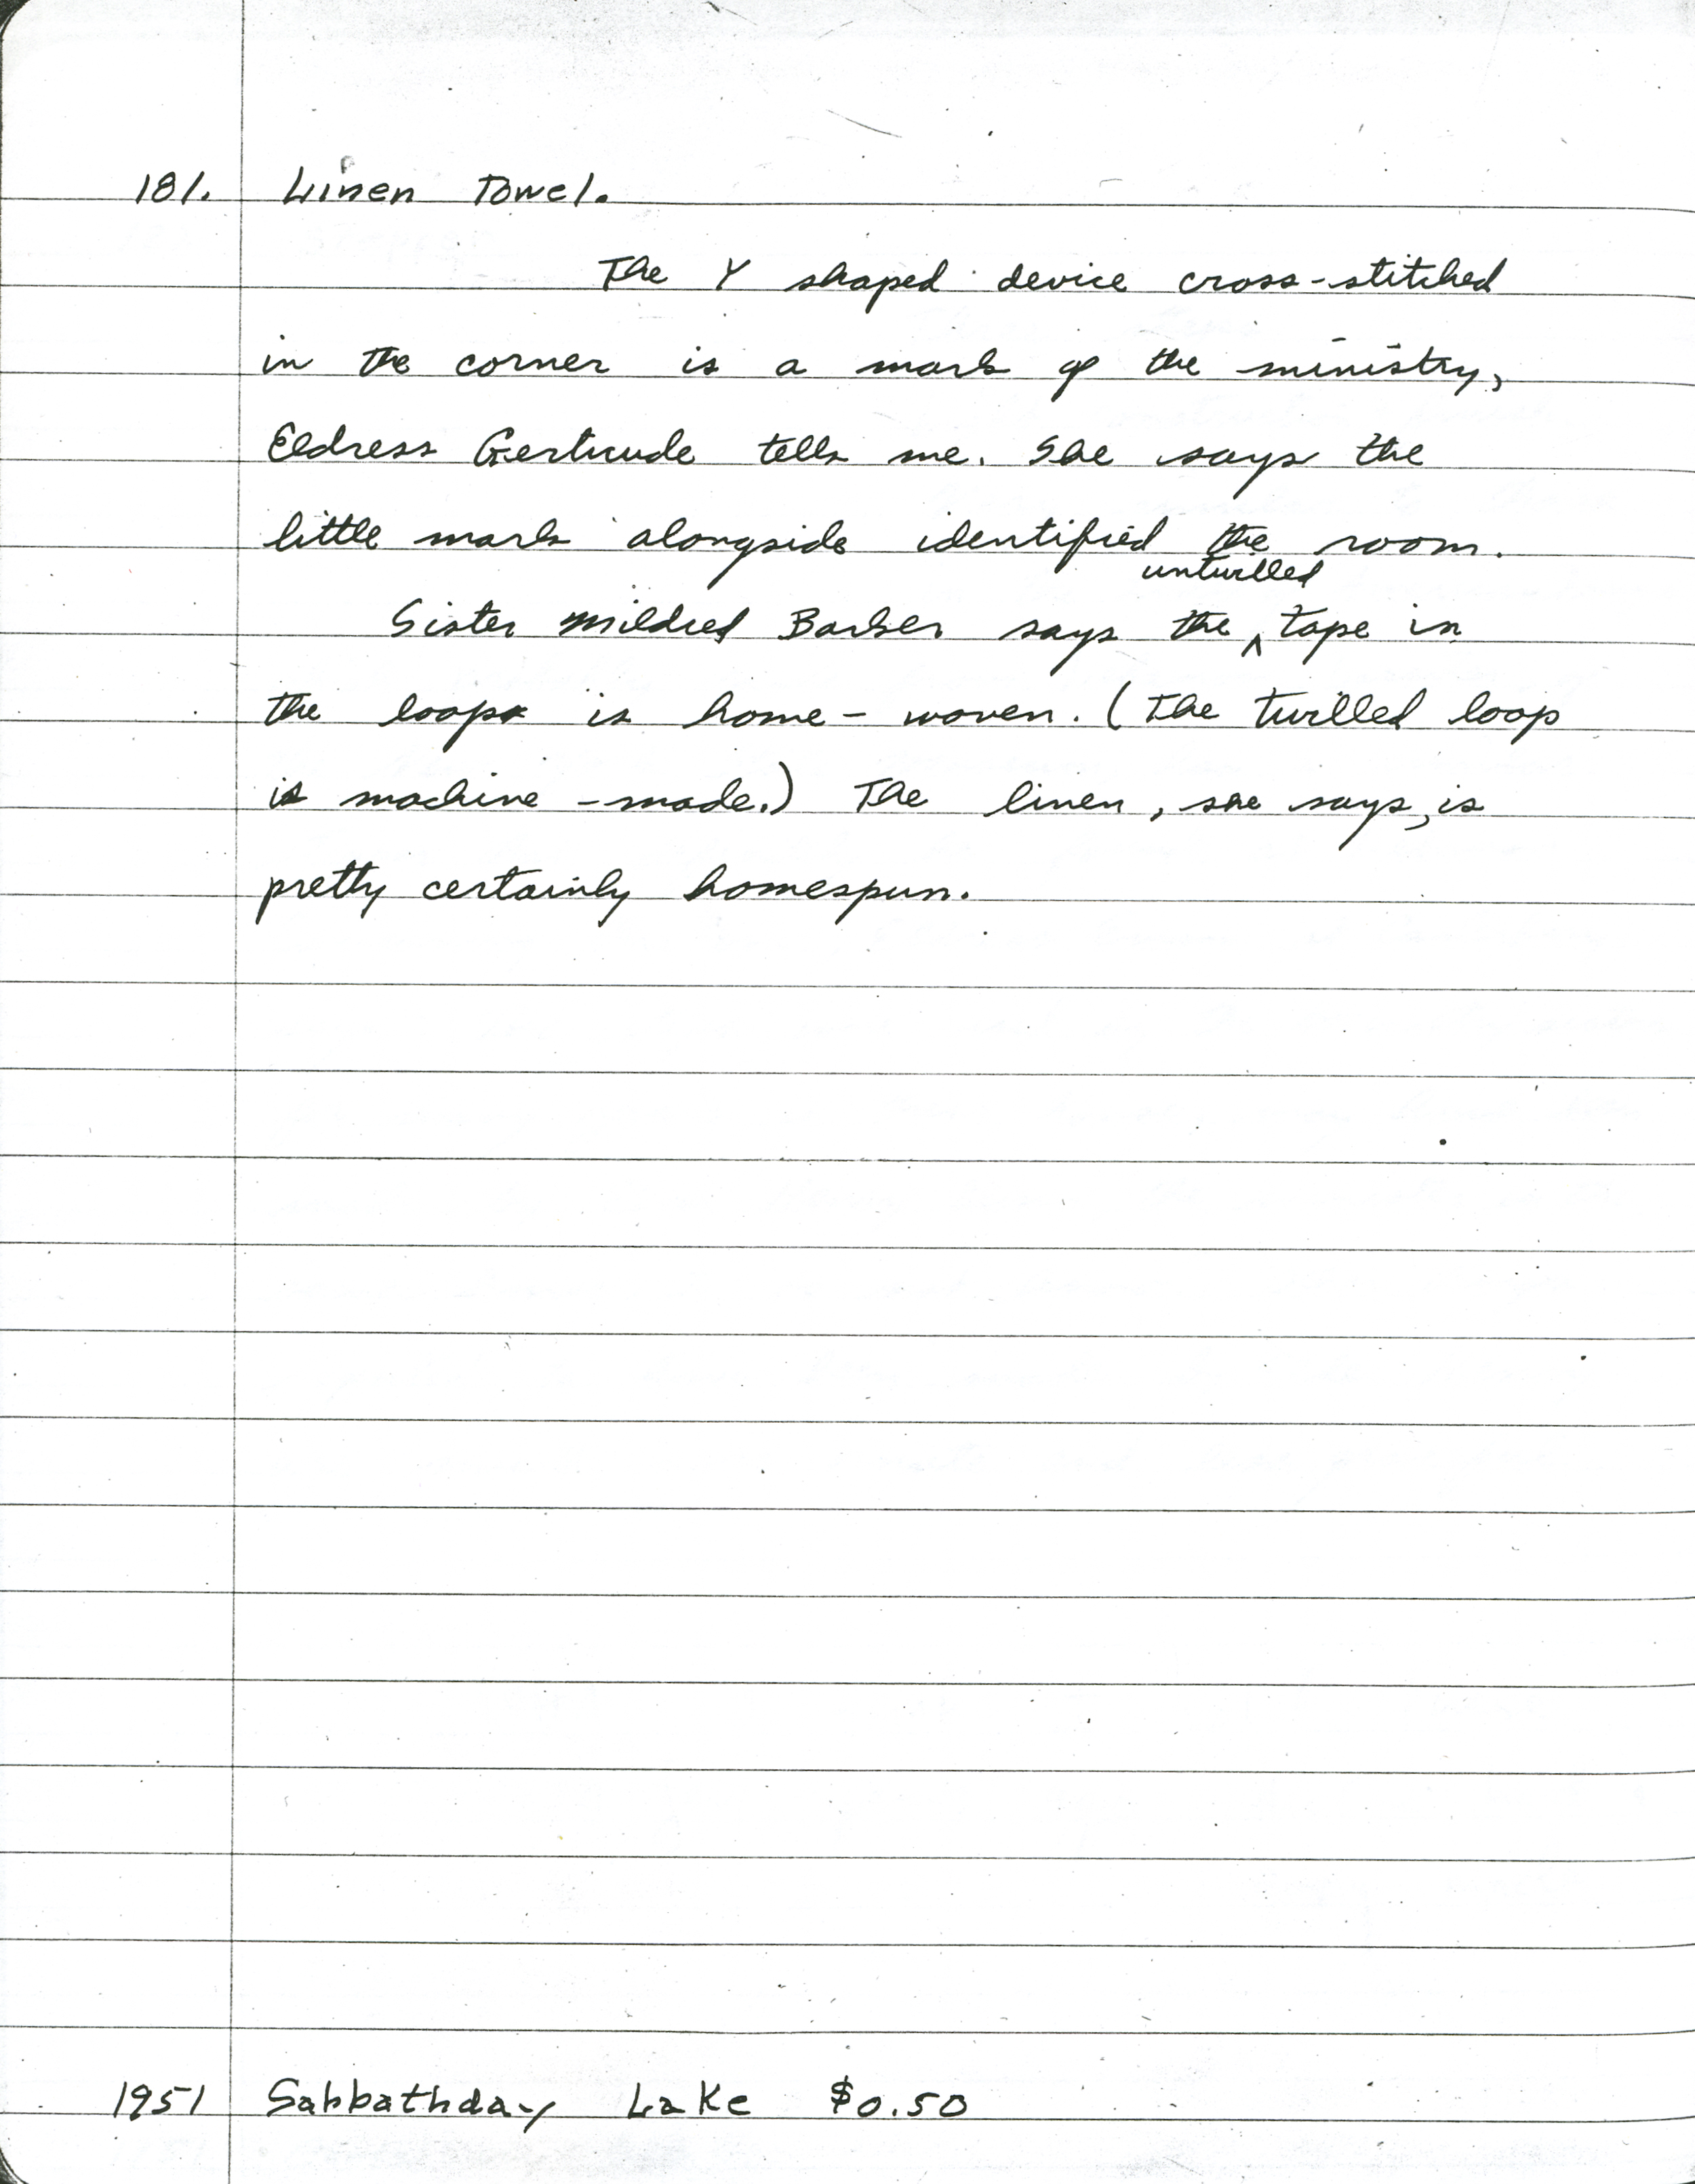 181. Linen Towel.
The Y shaped device cross-stitched
in the corner is a mark of the ministry,
Eldress Gertrude tells me. She says the
little mark alongside identified the room.
untwilled
Sister Mildred Barker says the ^ tape in
the loops is home-woven. (The twilled loop
is machine-made.) The linen, she says, is
pretty certainly homespun.
1951 Sabbathday Lake $0.50